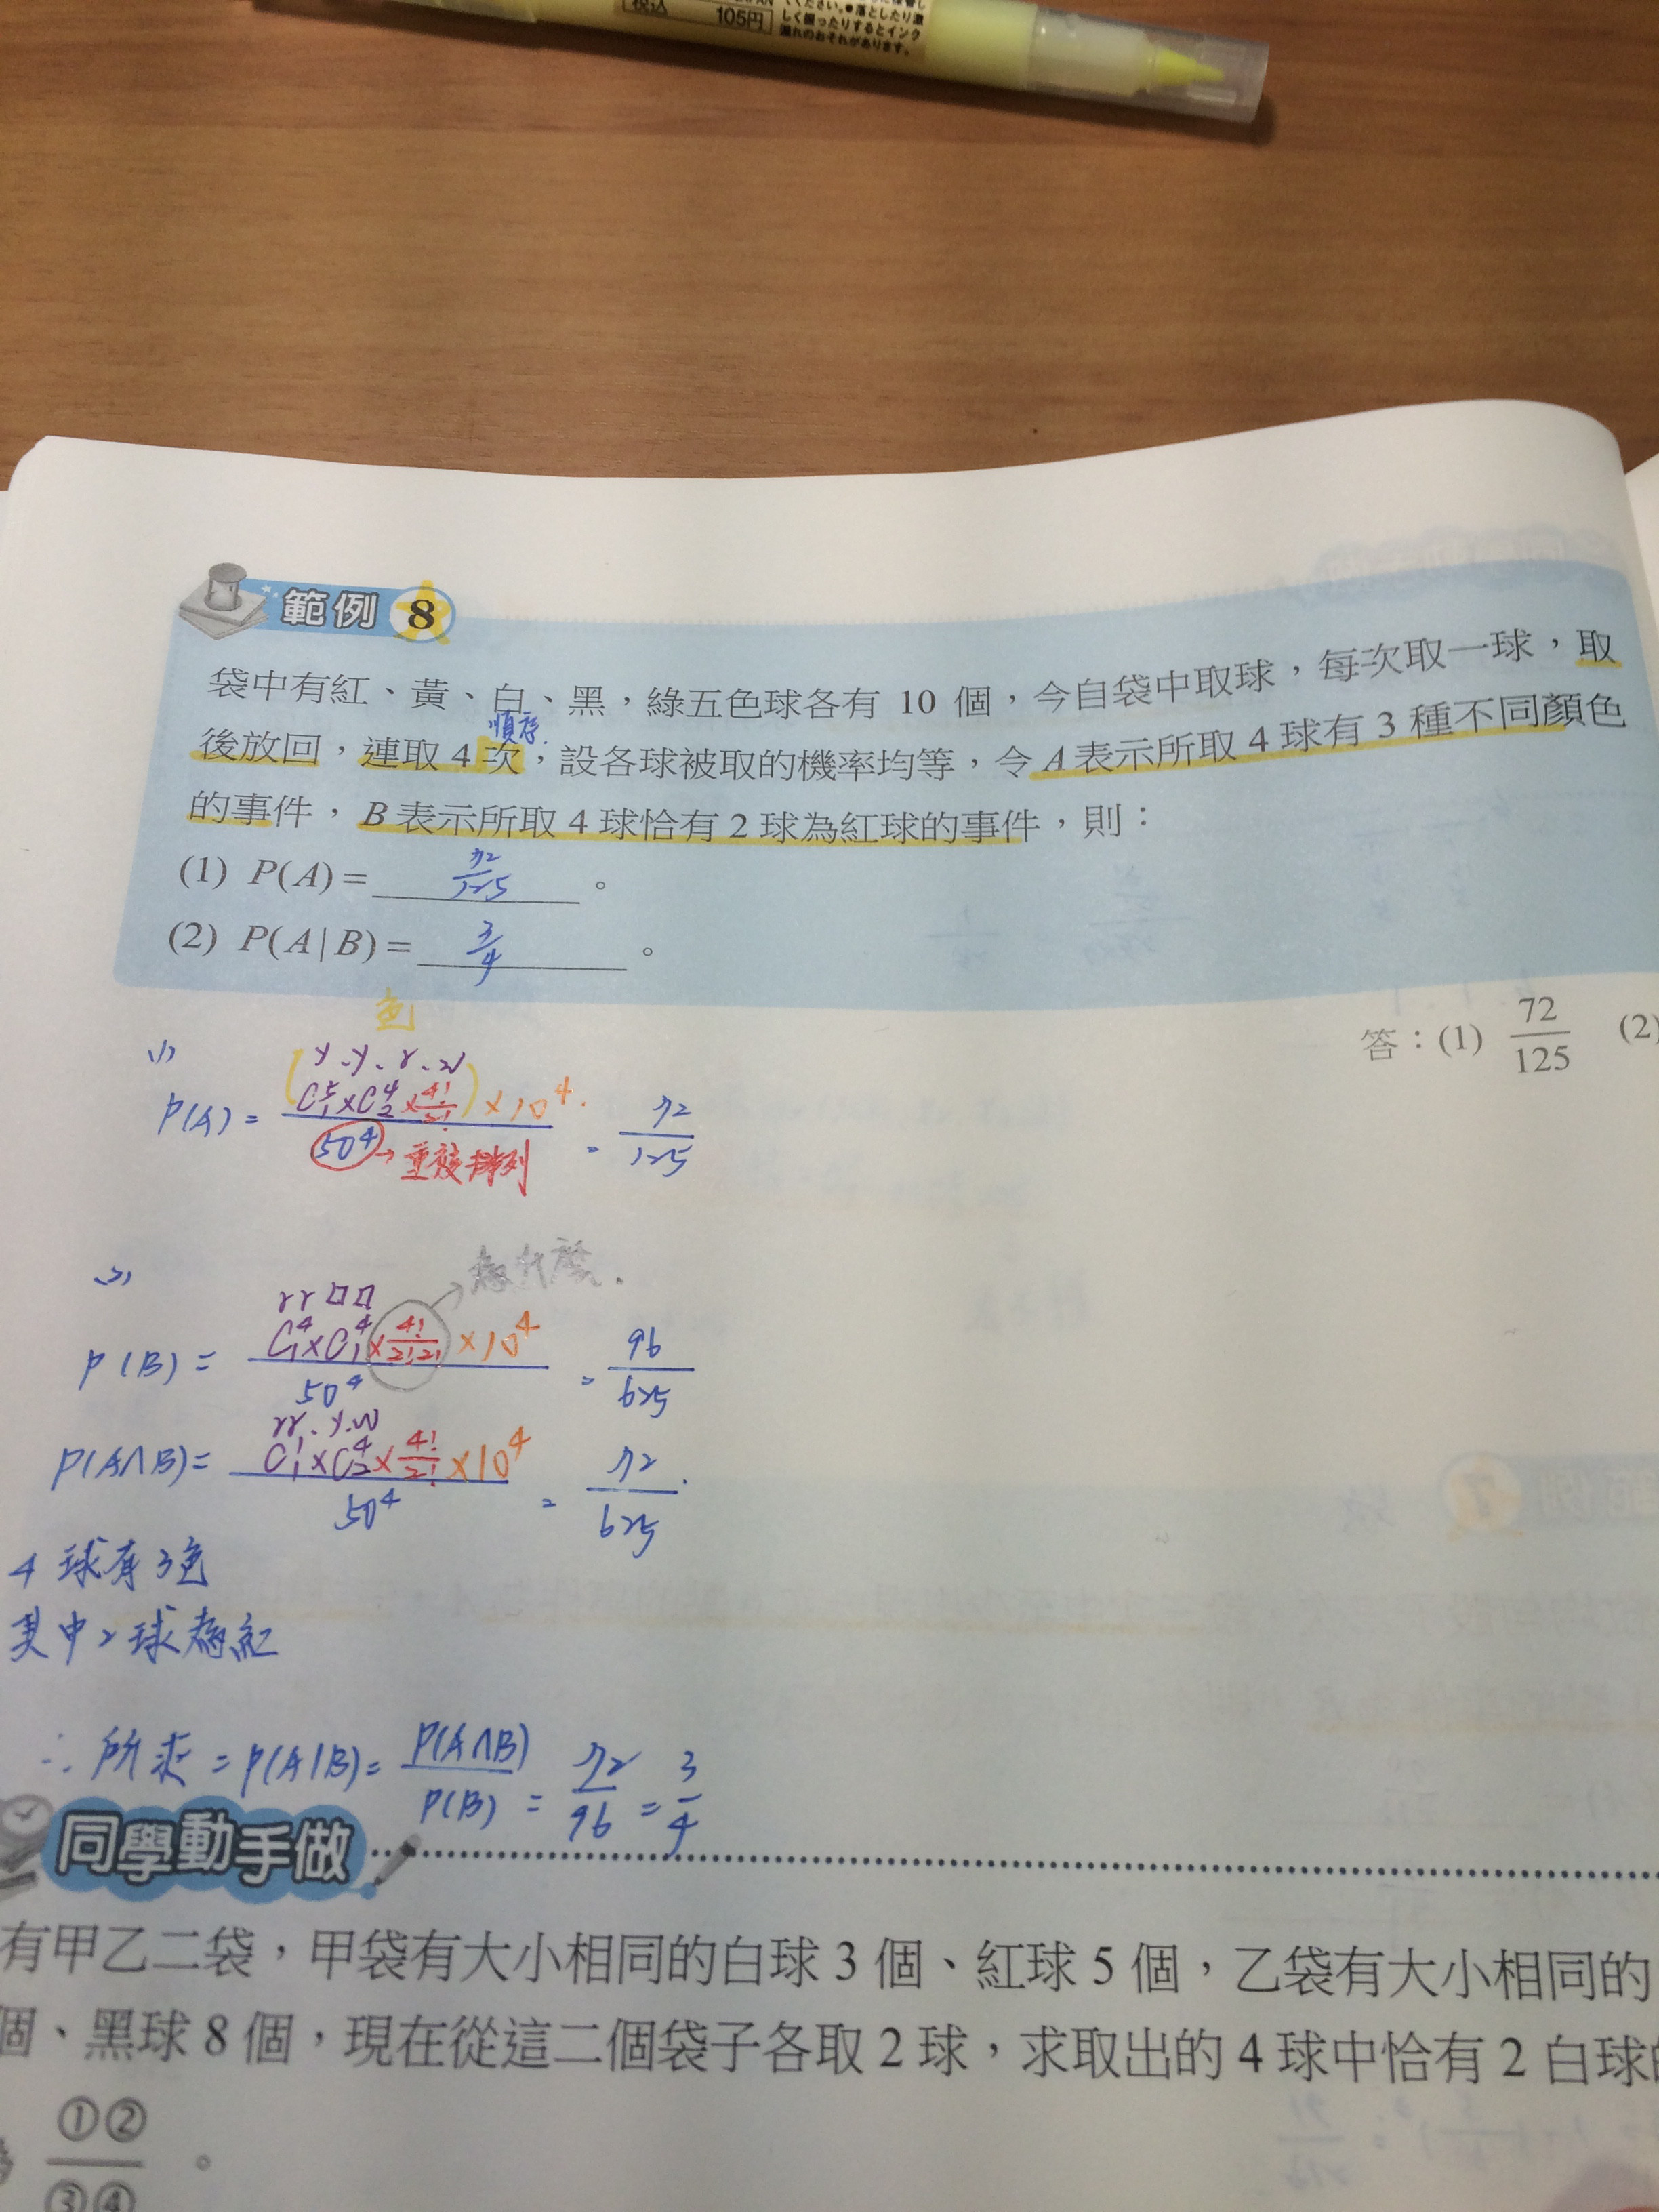 税込 105円
ください。●落としたり激
しく振ったりするとインク
漏れのおそれがあります。
範例 8
袋中有紅、黃、白、黑，綠五色球各有 10 個，今自袋中取球，每次取一球，取
順序
後放回，連取 4 次，設各球被取的機率均等，令 A 表示所取 4 球有 3 種不同顏色
的事件，B 表示所取 4 球恰有 2 球為紅球的事件，則：
(1) P(A) = 72/125 。
(2) P(A|B) = 3/4 。
答：(1) 72/125 (2)
色
(1)
y、y、r、w
P(A) = (C⁵₁×C⁴₂×4!/2!)×10⁴ / 50⁴ = 72/125
→重複排列
(2)
→為什麼.
rr□□
P(B) = C⁴₁×C⁴₁×4!/2!2!×10⁴ / 50⁴ = 96/625
rr、y.w
P(A∩B) = C¹₁×C⁴₂×4!/2!×10⁴ / 50⁴ = 72/625
4 球有3色
其中2球為紅
∴所求 = P(A|B) = P(A∩B)/P(B) = 72/96 = 3/4
同學動手做
有甲乙二袋，甲袋有大小相同的白球 3 個、紅球 5 個，乙袋有大小相同的
個、黑球 8 個，現在從這二個袋子各取 2 球，求取出的 4 球中恰有 2 白球的
①②/③④ 。